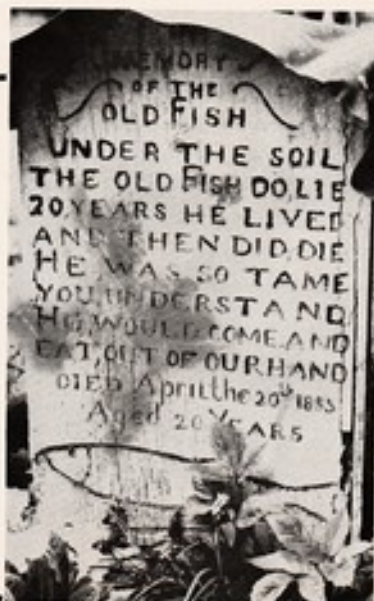 MEMORY
OF THE
OLD FISH
UNDER THE SOIL
THE OLD FISH DO LIE
20 YEARS HE LIVED
AND THEN DID DIE
HE WAS SO TAME
YOU UNDERSTAND
HE WOULD COME AND
EAT OUT OF OUR HAND
DIED April the 20th 1855
Aged 20 YEARS